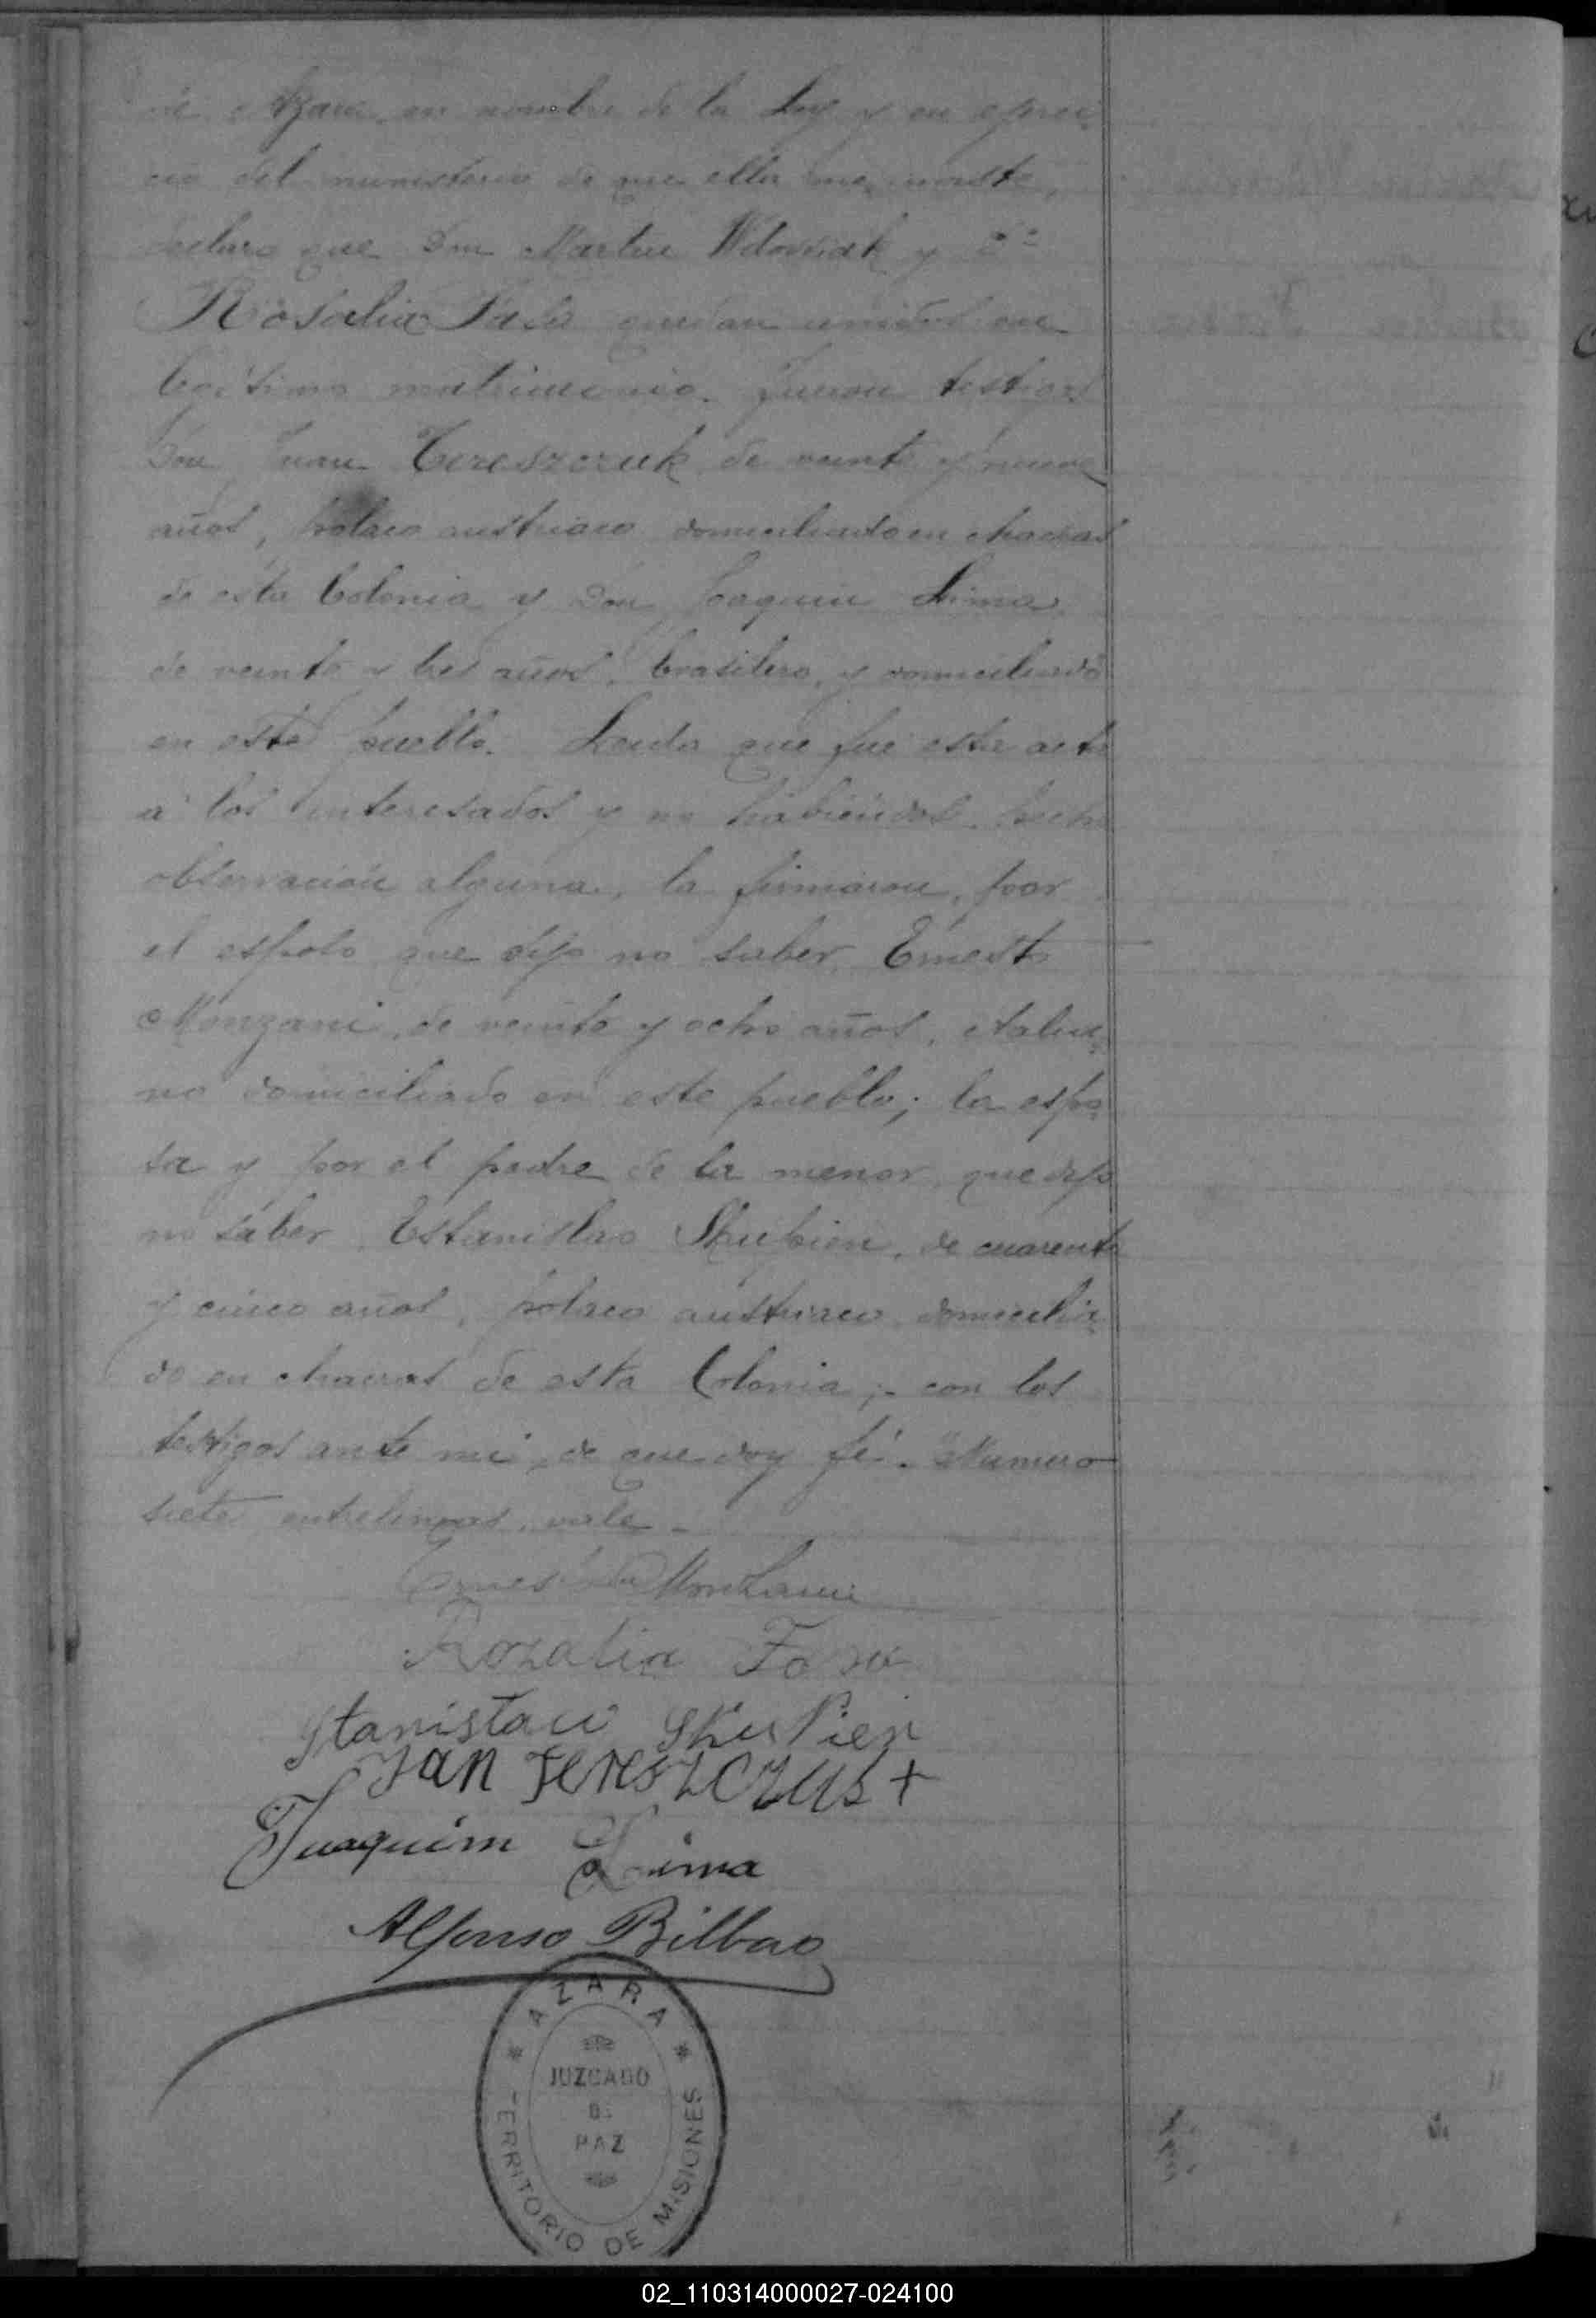 de Azara, en nombre de la Ley y en ejerci-
cio del ministerio de que ella me inviste,
declaro que Don Martin Wdowiak y Dª
Rosalia Fasa quedan unidos en
legitimo matrimonio. Fueron testigos
Don Juan Tereszczuk de veinte y nueve
años, polaco austriaco domiciliado en chacras
de esta Colonia y Don Joaquin Lima
de veinte y tres años, brasilero, y domiciliado
en este pueblo. Leida que fue esta acta
a los interesados y no habiendose hecho
observación alguna, la firmaron, por
el esposo que dijo no saber Ernesto
Monzani, de veinte y ocho años, italia-
no domiciliado en este pueblo; la espo-
sa y por el padre de la menor, que dijo
no saber Estanislao Skupien, de cuarenta
y cinco años, polaco austriaco, domicilia-
do en chacras de esta Colonia; - con los
testigos ante mi, de que doy fé. Numero
siete entrelineas, vale -
Ernesto Monzani
Rozalia
Stanistaw Skupien
JAN Tereszczuk +
Juaquim Lima
Alfonso Bilbao
* AZARA *
JUZGADO
DE
PAZ
TERRITORIO DE MISIONES
02_110314000027-024100